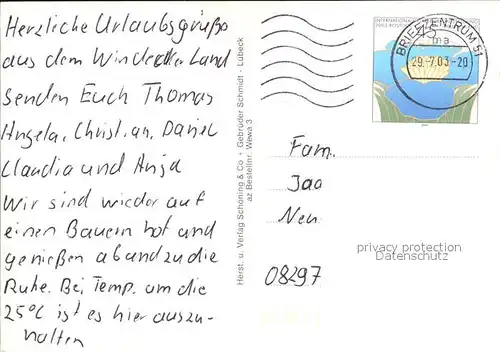 Herzliche Urlaubsgrüße
aus dem Windecker Land
senden Euch Thomas
Angela, Christian, Daniel
Claudia und Anja
Wir sind wieder auf
einen Bauern hof und
genießen ab und zu die
Ruhe. Bei Temp. um die
25°C ist es hier auszu-
halten
Herst. u. Verlag Schöning & Co + Gebrüder Schmidt - Lübeck
az Bestellnr. Wewa 3
BRIEFZENTRUM 51
ma
29.-7.03-20
Fam.
Jaa
Neu
08297
privacy protection
Datenschutz